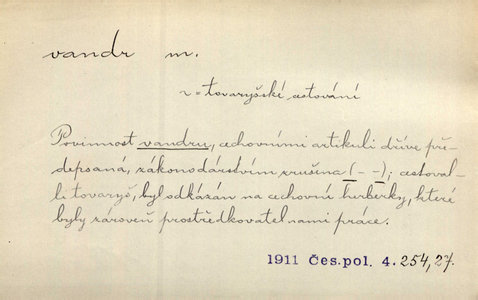 vandr m.
v = tovaryšské cestování
Povinnost vandru, cechovními artikuli dříve pře-
depsaná, zákonodárstvím zrušena (- -); cestoval-
li tovaryš, byl odkázán na cechovní herberky, které
byly zároveň prostředkovatelnami práce.
1911 Čes. pol. 4. 254, 27.